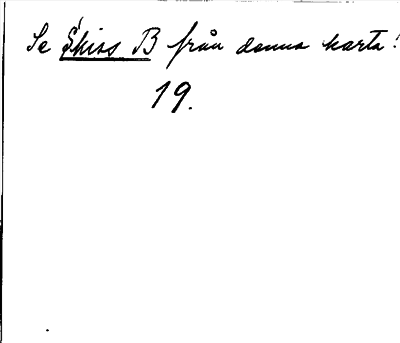 Se Skiss B från denna karta!
19.